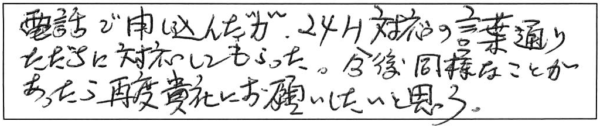 電話で申し込んだが、24H対応の言葉通り
ただちに対応してもらった。今後同様なことが
あったら再度貴社にお願いしたいと思う。